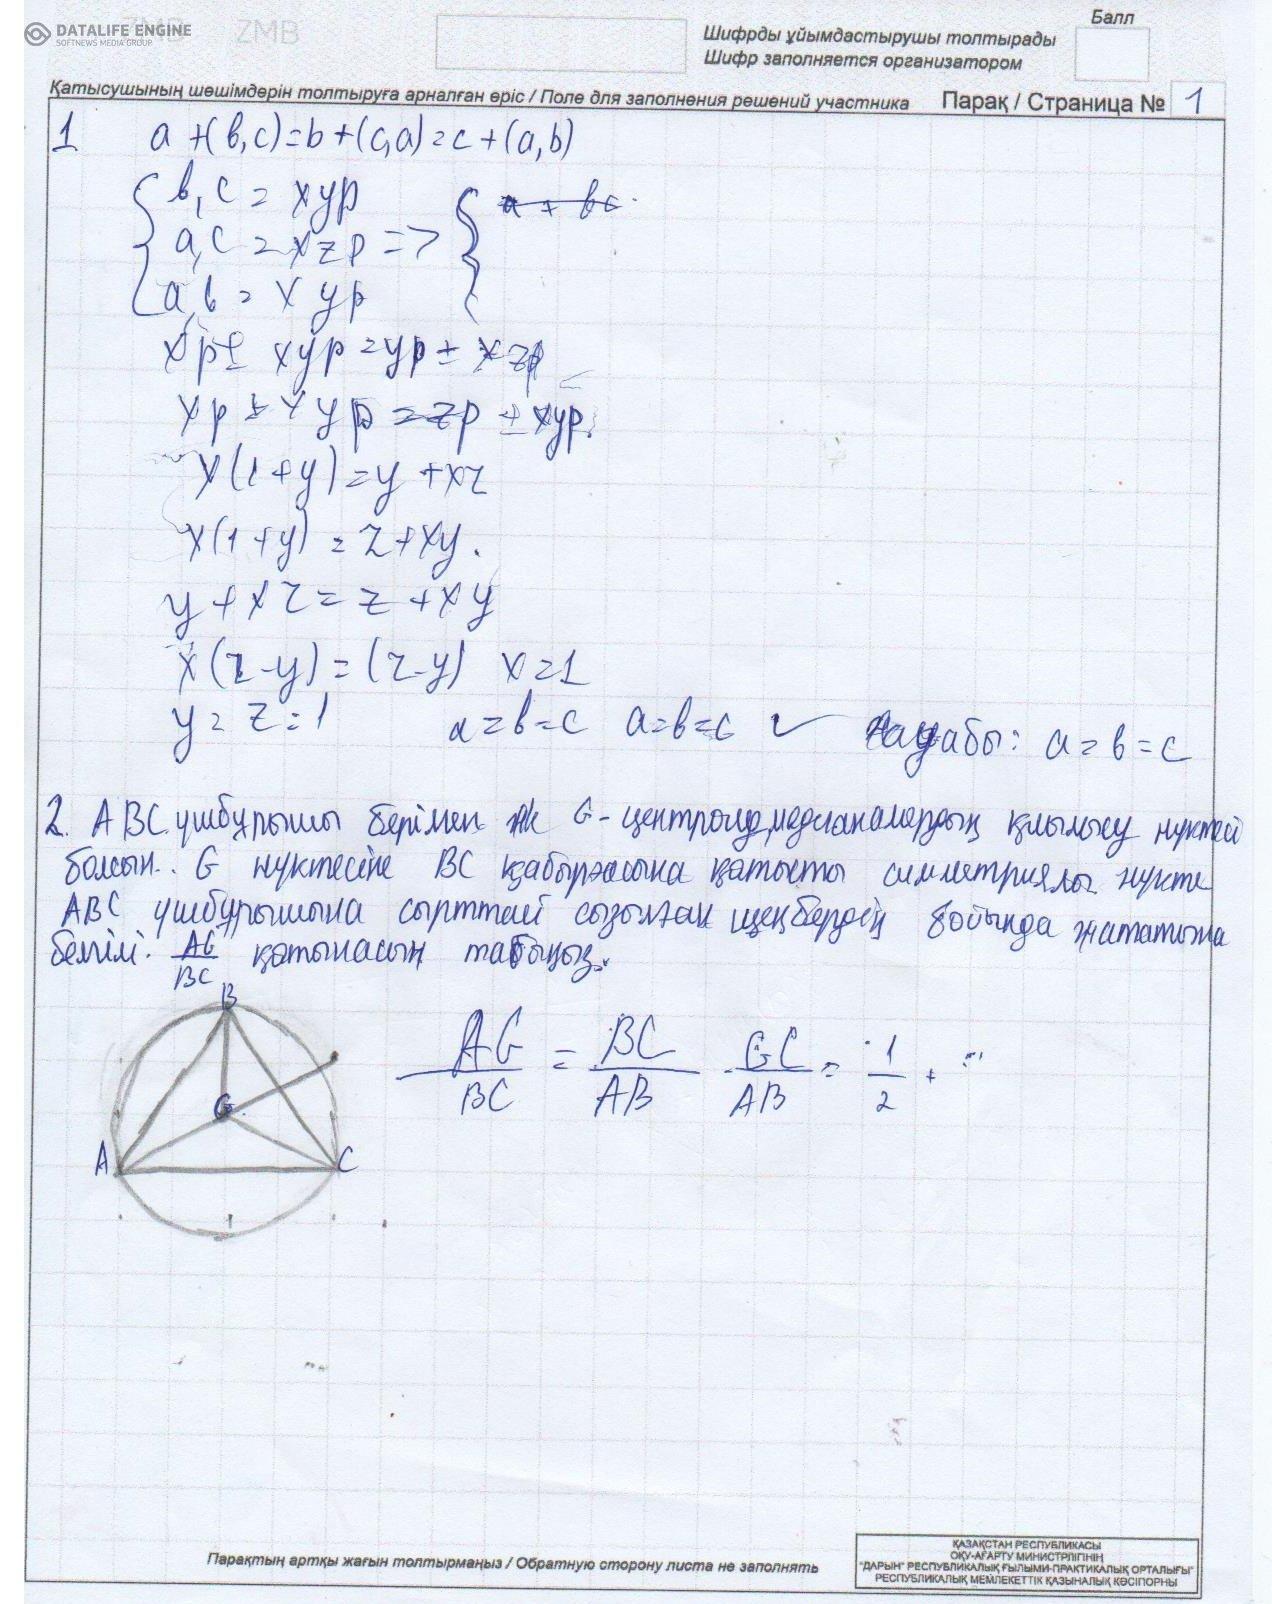 DATALIFE ENGINE
SOFTNEWS MEDIA GROUP
ZMB ZMB
Балл
Шифрды ұйымдастырушы толтырады
Шифр заполняется организатором
Қатысушының шешімдерін толтыруға арналған өріс / Поле для заполнения решений участника Парақ / Страница № 1
1 a + (b,c) = b + (c,a) = c + (a,b)
b,c = xyp
a,c = xzp =>
a,b = xyp
a + bc
xp ± xyp = yp ± xzp
xp ± xyp = zp ± xyp.
x(1+y) = y + xz
x(1+y) = z + xy.
y + xz = z + xy
x(z-y) = (z-y) x=1
y = z = 1 a=b=c a=b=c ✓ a=b=c
2. ABC үшбұрышы берілген ж/е G - центроид, медианалардың қиылысу нүктесі
болсын.. G нүктесіне BC қабырғасына қатысты симметриялы нүкте
ABC үшбұрышына сырттай сызылған шеңбердің бойында жататыны
белгілі. AG/BC қатынасын табыңыз.
B
A
G
C
AG/BC = BC/AB · GC/AB = 1/2
Парақтың артқы жағын толтырмаңыз / Обратную сторону листа не заполнять
ҚАЗАҚСТАН РЕСПУБЛИКАСЫ
ОҚУ-АҒАРТУ МИНИСТРЛІГІНІҢ
"ДАРЫН" РЕСПУБЛИКАЛЫҚ ҒЫЛЫМИ-ПРАКТИКАЛЫҚ ОРТАЛЫҒЫ"
РЕСПУБЛИКАЛЫҚ МЕМЛЕКЕТТІК ҚАЗЫНАЛЫҚ КӘСІПОРНЫ